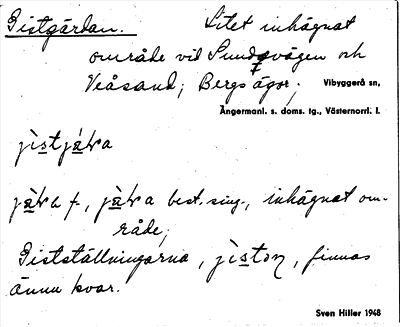 Gistgårdan. Litet inhägnat
område vid Sundsvägen och
Veåsand; Bergs ägor; Vibyggerå sn,
Ångermanl. s. doms. tg., Västernorrl. l.
f., best. sing., inhägnat om-
råde;
Gistställningarna, finnas
ännu kvar.
Sven Hiller 1948